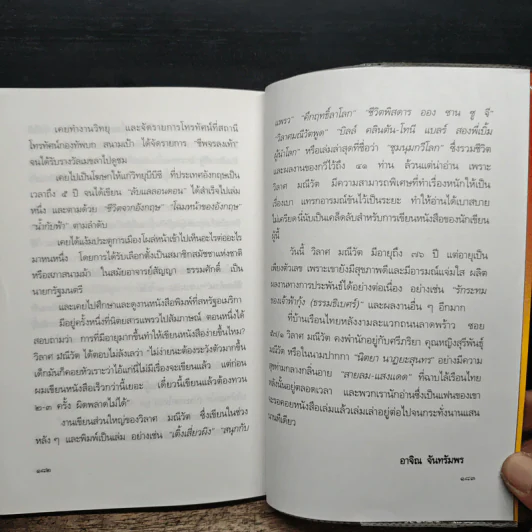 เคยทำงานวิทยุ และจัดรายการโทรทัศน์ที่สถานี
โทรทัศน์กองทัพบก สนามเป้า ได้จัดรายการ "ชีพจรลงเท้า"
จนได้รับรางวัลเมขลาไปดูชม
เคยไปเป็นโฆษกให้แก่วิทยุบีบีซี ที่ประเทศอังกฤษเป็น
เวลาถึง ๕ ปี จนได้เขียน "ลับแลลอนดอน" ได้สำเร็จไปเล่ม
หนึ่ง และตามด้วย "ชีวิตจากอังกฤษ" "โฉมหน้าของอังกฤษ"
"น้ำกับฟ้า" ตามลำดับ
เคยได้แง้มประตูการเมืองโผล่หน้าเข้าไปเห็นอะไรต่ออะไร
มาหนหนึ่ง โดยการได้รับเลือกตั้งเป็นสมาชิกสมัชชาแห่งชาติ
หรือสภาสนามม้า ในสมัยอาจารย์สัญญา ธรรมศักดิ์ เป็น
นายกรัฐมนตรี
และเคยไปศึกษาและดูงานหนังสือพิมพ์ที่สหรัฐอเมริกา
มีอยู่ครั้งหนึ่งที่นิตยสารแพรวไปสัมภาษณ์ ตอนหนึ่งได้
สอบถามว่า การที่มีอายุมากขึ้นทำให้เขียนหนังสือง่ายขึ้นไหม?
วิลาศ มณีวัต ได้ตอบไม่ลังเลว่า "ไม่ง่ายนะต้องระวังตัวมากขึ้น
เด็กมันก็คอยหัวเราะว่าไอ้แก่นี่ไม่มีเรื่องจะเขียนแล้ว แต่ก่อน
ผมเขียนหนังสือเร็วกว่านี้เยอะ เดี๋ยวนี้เขียนแล้วต้องทวน
๒-๓ ครั้ง ผิดพลาดไม่ได้"
งานเขียนส่วนใหญ่ของวิลาศ มณีวัต ซึ่งเขียนในช่วง
หลัง ๆ และพิมพ์เป็นเล่ม อย่างเช่น "เติ้งเสี่ยวผิง" "สนุกกับ
๑๘๒
แพรว" "ศึกฤทธิ์ลาโลก" "ชีวิตพิสดาร ออง ซาน ซู จี"
"วิลาศมณีวัตพูด" "บิลล์ คลินตัน-โทนี แบลร์ สองพี่เบิ้ม
ผู้นำโลก" หรือเล่มล่าสุดที่ชื่อว่า "ชุมนุมกวีโลก" ซึ่งรวมชีวิต
และผลงานของกวีไว้ถึง ๔๑ ท่าน ล้วนแต่น่าอ่าน เพราะ
วิลาศ มณีวัต มีความสามารถพิเศษที่ทำเรื่องหนักให้เป็น
เรื่องเบา แทรกอารมณ์ขันไว้เป็นระยะ ทำให้อ่านได้เบาสบาย
ไม่เครียดนี่นับเป็นเคล็ดลับสำหรับการเขียนหนังสือของนักเขียน
ผู้นี้
วันนี้ วิลาศ มณีวัต มีอายุถึง ๗๖ ปี แต่อายุเป็น
เพียงตัวเลข เพราะเขายังมีสุขภาพดีและมีอารมณ์แจ่มใส ผลิต
ผลงานทางการประพันธ์ได้อย่างต่อเนื่อง อย่างเช่น "รักระทม
ของเจ้าฟ้ากุ้ง (ธรรมธิเบศร์)" และผลงานอื่น ๆ อีกมาก
ที่บ้านเรือนไทยหลังงามละแวกถนนลาดพร้าว ซอย
วิลาศ มณีวัต คงพำนักอยู่กับศรีภริยา คุณหญิงสุรีพันธุ์
มณีวัต หรือในนามปากกา "นิตยา นาฏยะสุนทร" อย่างมีความ
สุขท่ามกลางกลิ่นอาย "สายลม-แสงแดด" ที่ฉาบไล้เรือนไทย
หลังนั้นอยู่ตลอดเวลา และพวกเรานักอ่านซึ่งเป็นแฟนของเขา
จะรอคอยหนังสือเล่มแล้วเล่มเล่าอยู่ต่อไปจนกระทั่งนานแสน
นานทีเดียว
อาจิณ จันทรัมพร
๑๘๓